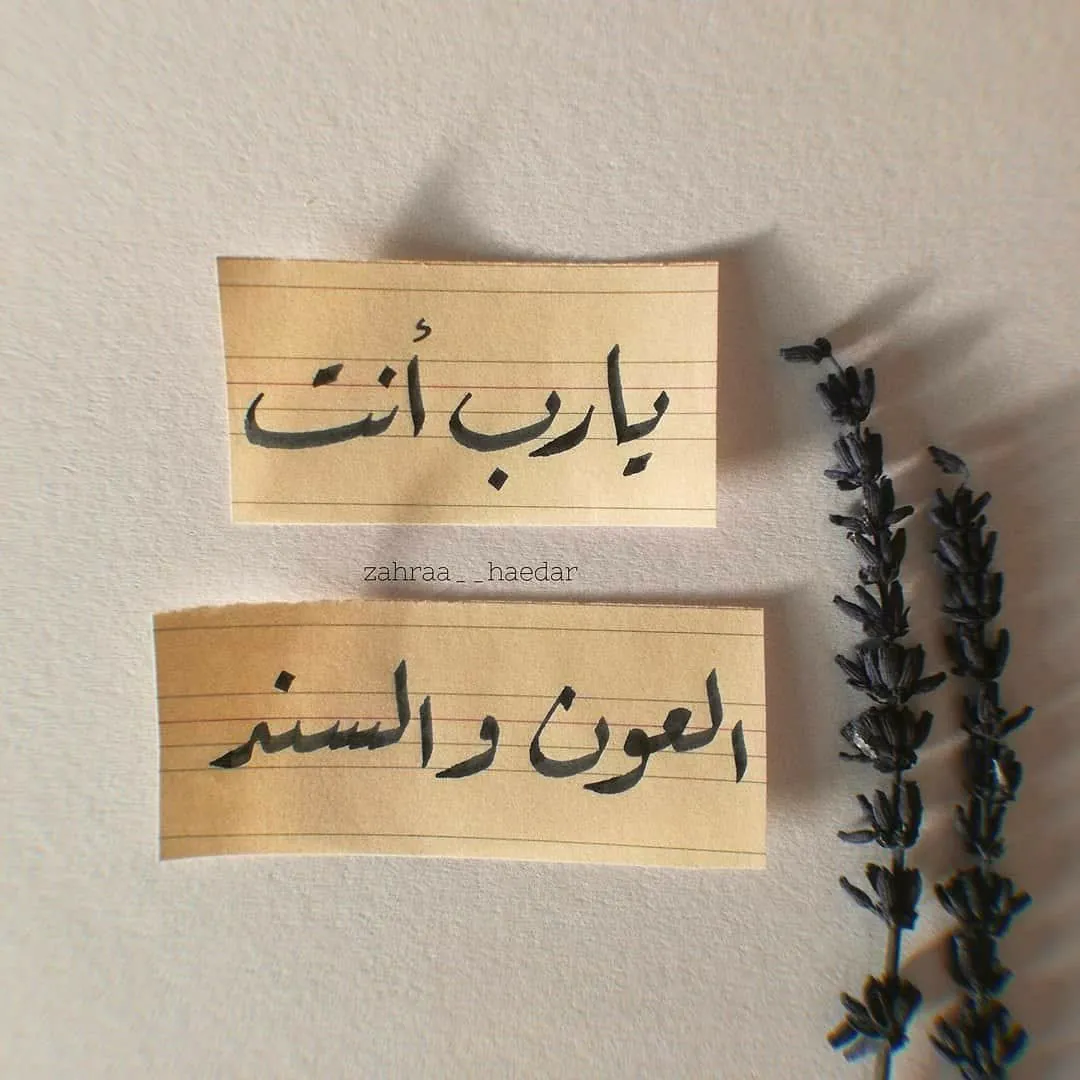 يارب أنت
zahraa__haedar
العون والسند